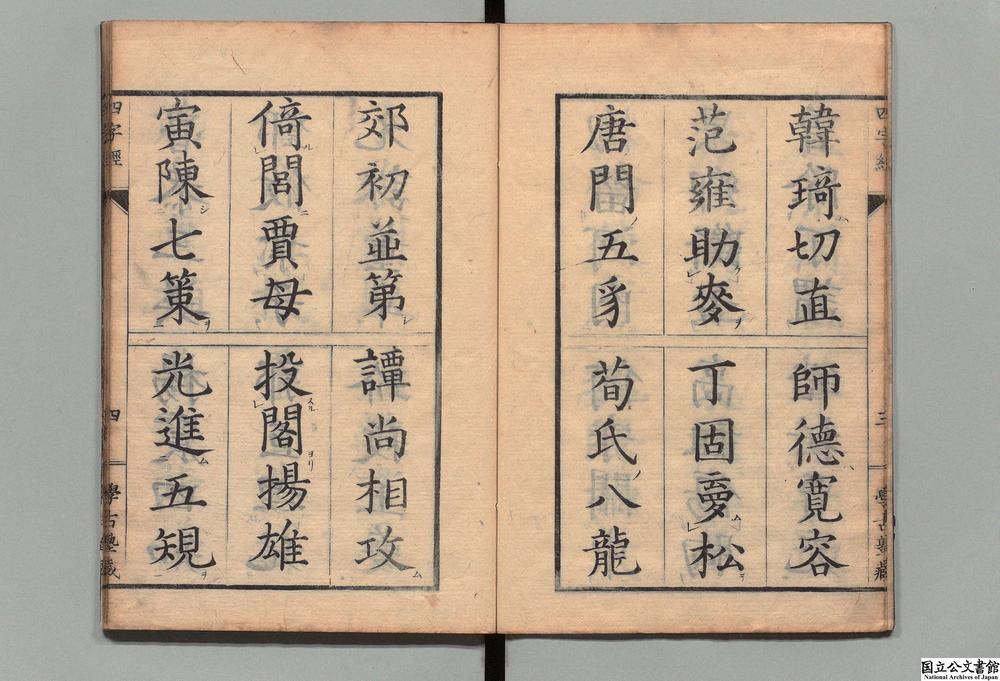 四字經 三 學古塾藏
韓琦切直 師德寬容
范雍助麥 丁固夢松
唐門五豸 荀氏八龍
郊初並第 譚尚相攻
倚閭賈母 投閣揚雄
寅陳七䇿 光進五䂓
四字經 四 學古塾藏
国立公文書館
National Archives of Japan